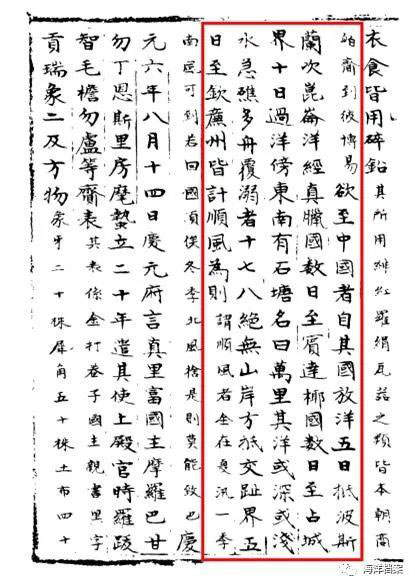 衣食皆用碎鉛其所用緋紅羅絹瓦器之類皆本朝商
舶齎到彼博易欲至中國者自其國放洋五日抵波斯
蘭次崑崙洋經真臘國數日至賓達椰國數日至占城
界十日過洋傍東南有石塘名曰萬里其洋或深或淺
水急礁多舟覆溺者十七八絕無山岸方抵交趾界五
日至欽廉州皆計順風為則謂順風者全在夏汛一季
南風可到若回國須俟冬季北風捨是則莫能致也慶
元六年八月十四日慶元府言真里富國主摩羅巴甘
勿丁恩斯里房麾蟄立二十年遣其使上殿官時羅跋
智毛檐勿盧等齎表其表係金打卷子國主親書黑字
貢瑞象二及方物象牙二十株犀角五十株土布四十
海洋档案